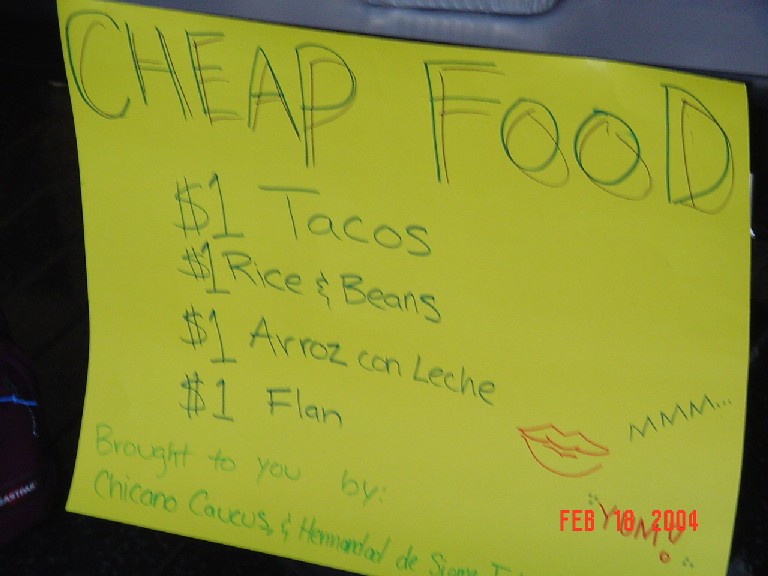 CHEAP FOOD
$1 Tacos
$1 Rice & Beans
$1 Arroz con Leche
$1 Flan
MMM...
Brought to you by:
Chicano Caucus, & Hermandad de Sigma
YUM!
FEB 18 2004
EASTPAK